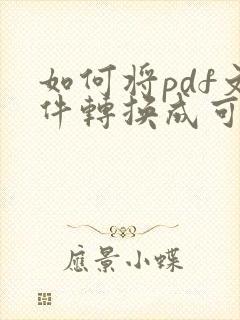 如何将pdf文
件轉換成可
應景小蝶